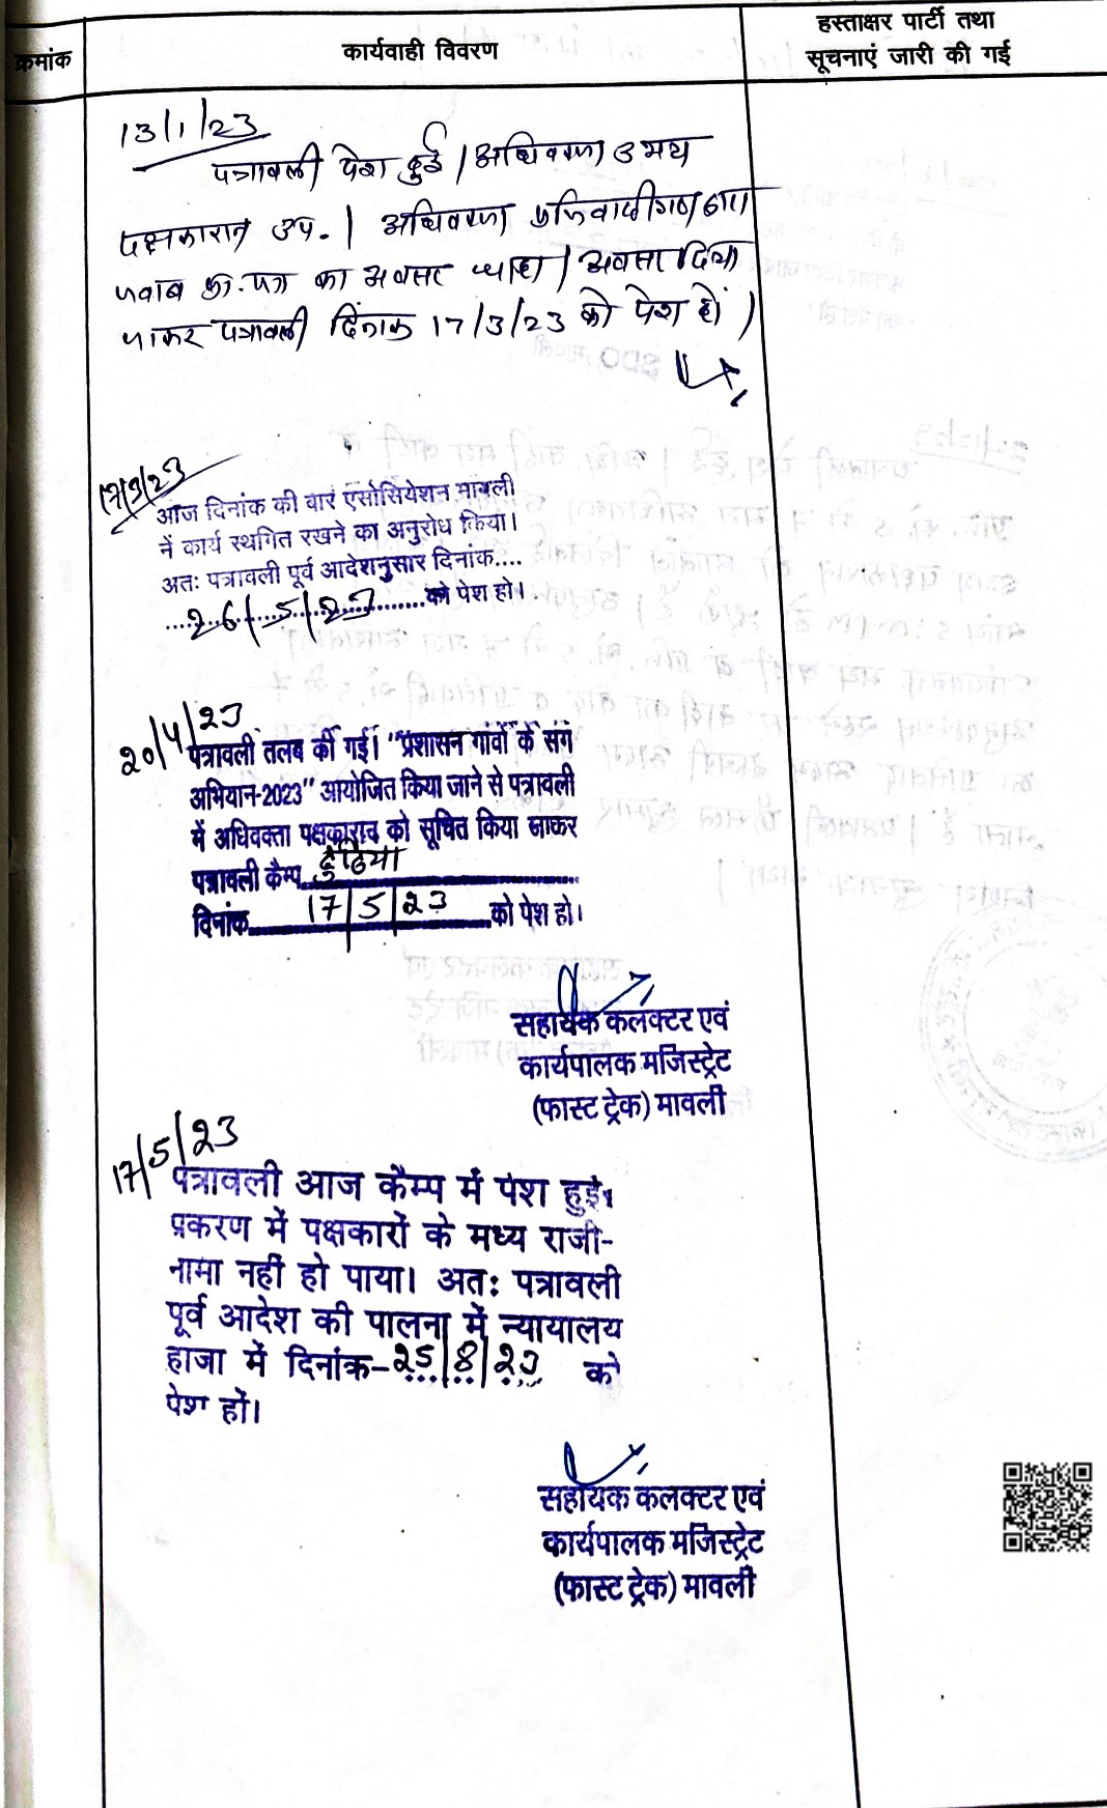 क्रमांक
कार्यवाही विवरण
हस्ताक्षर पार्टी तथा
सूचनाएं जारी की गई
13/1/23
पत्रावली पेश हुई / अधिवक्ता उभय
पक्षकारान उप. | अधिवक्ता प्रतिवादीगण द्वारा
जवाब प्रा. पत्र का अवसर चाहा / अवसर दिया
जाकर पत्रावली दिनांक 17/3/23 को पेश हो /
17/3/23
आज दिनांक की वार एसोसियेशन मावली
नें कार्य स्थगित रखने का अनुरोध किया।
अतः पत्रावली पूर्व आदेशनुसार दिनांक....
26/5/23 को पेश हो।
20/4/23
पत्रावली तलब की गई। "प्रशासन गांवों के संग
अभियान-2023" आयोजित किया जाने से पत्रावली
में अधिवक्ता पक्षकाराव को सूचित किया जाकर
पत्रावली कैम्प
दिनांक 17/5/23 को पेश हो।
सहायक कलक्टर एवं
कार्यपालक मजिस्ट्रेट
(फास्ट ट्रेक) मावली
17/5/23
पत्रावली आज कैम्प में पेश हुई।
प्रकरण में पक्षकारों के मध्य राजी-
नामा नहीं हो पाया। अतः पत्रावली
पूर्व आदेश की पालना में न्यायालय
हाजा में दिनांक-25/8/23 को
पेश हों।
सहायक कलक्टर एवं
कार्यपालक मजिस्ट्रेट
(फास्ट ट्रेक) मावली